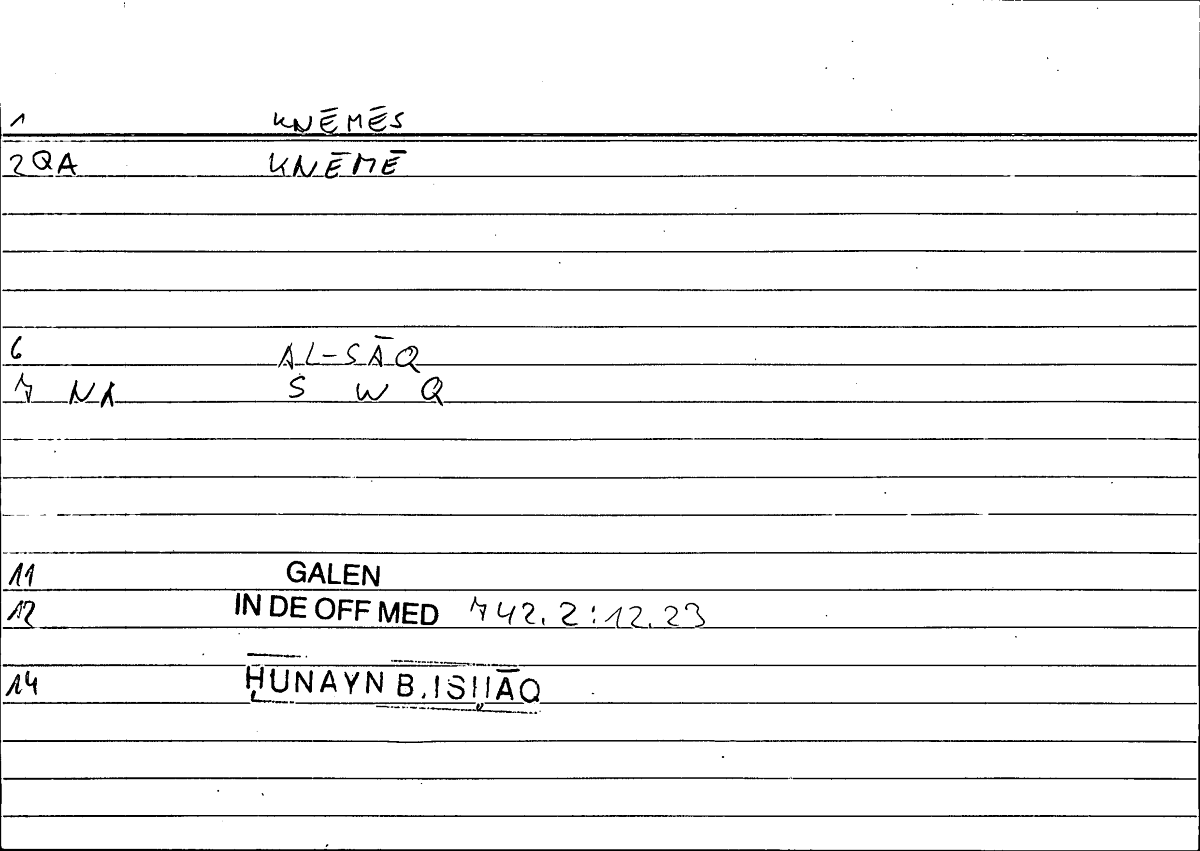 1 KNĒMĒS
2 QA KNĒMĒ
6 AL-SĀQ
7 NA S W Q
11 GALEN
12 IN DE OFF MED 742.2:12.23
14 ḤUNAYN B. ISḤĀQ